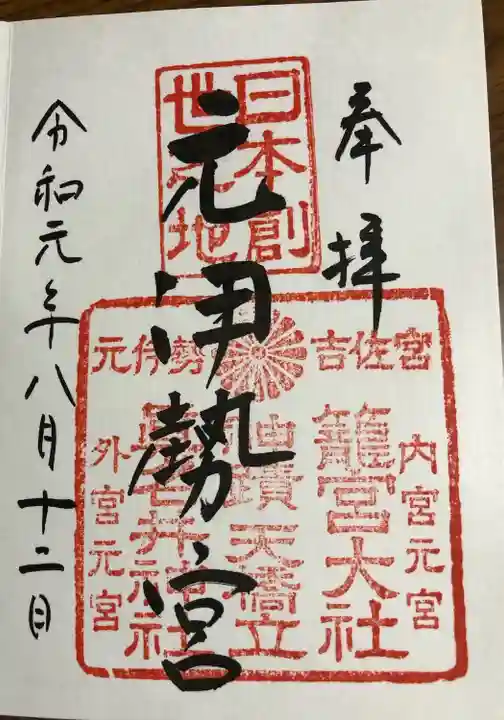 奉拝
日本創
世之地
元伊勢宮
吉佐宮
元伊勢
内宮元宮
籠宮大社
神蹟 天橋立
眞名井神社
外宮元宮
令和元年八月十二日